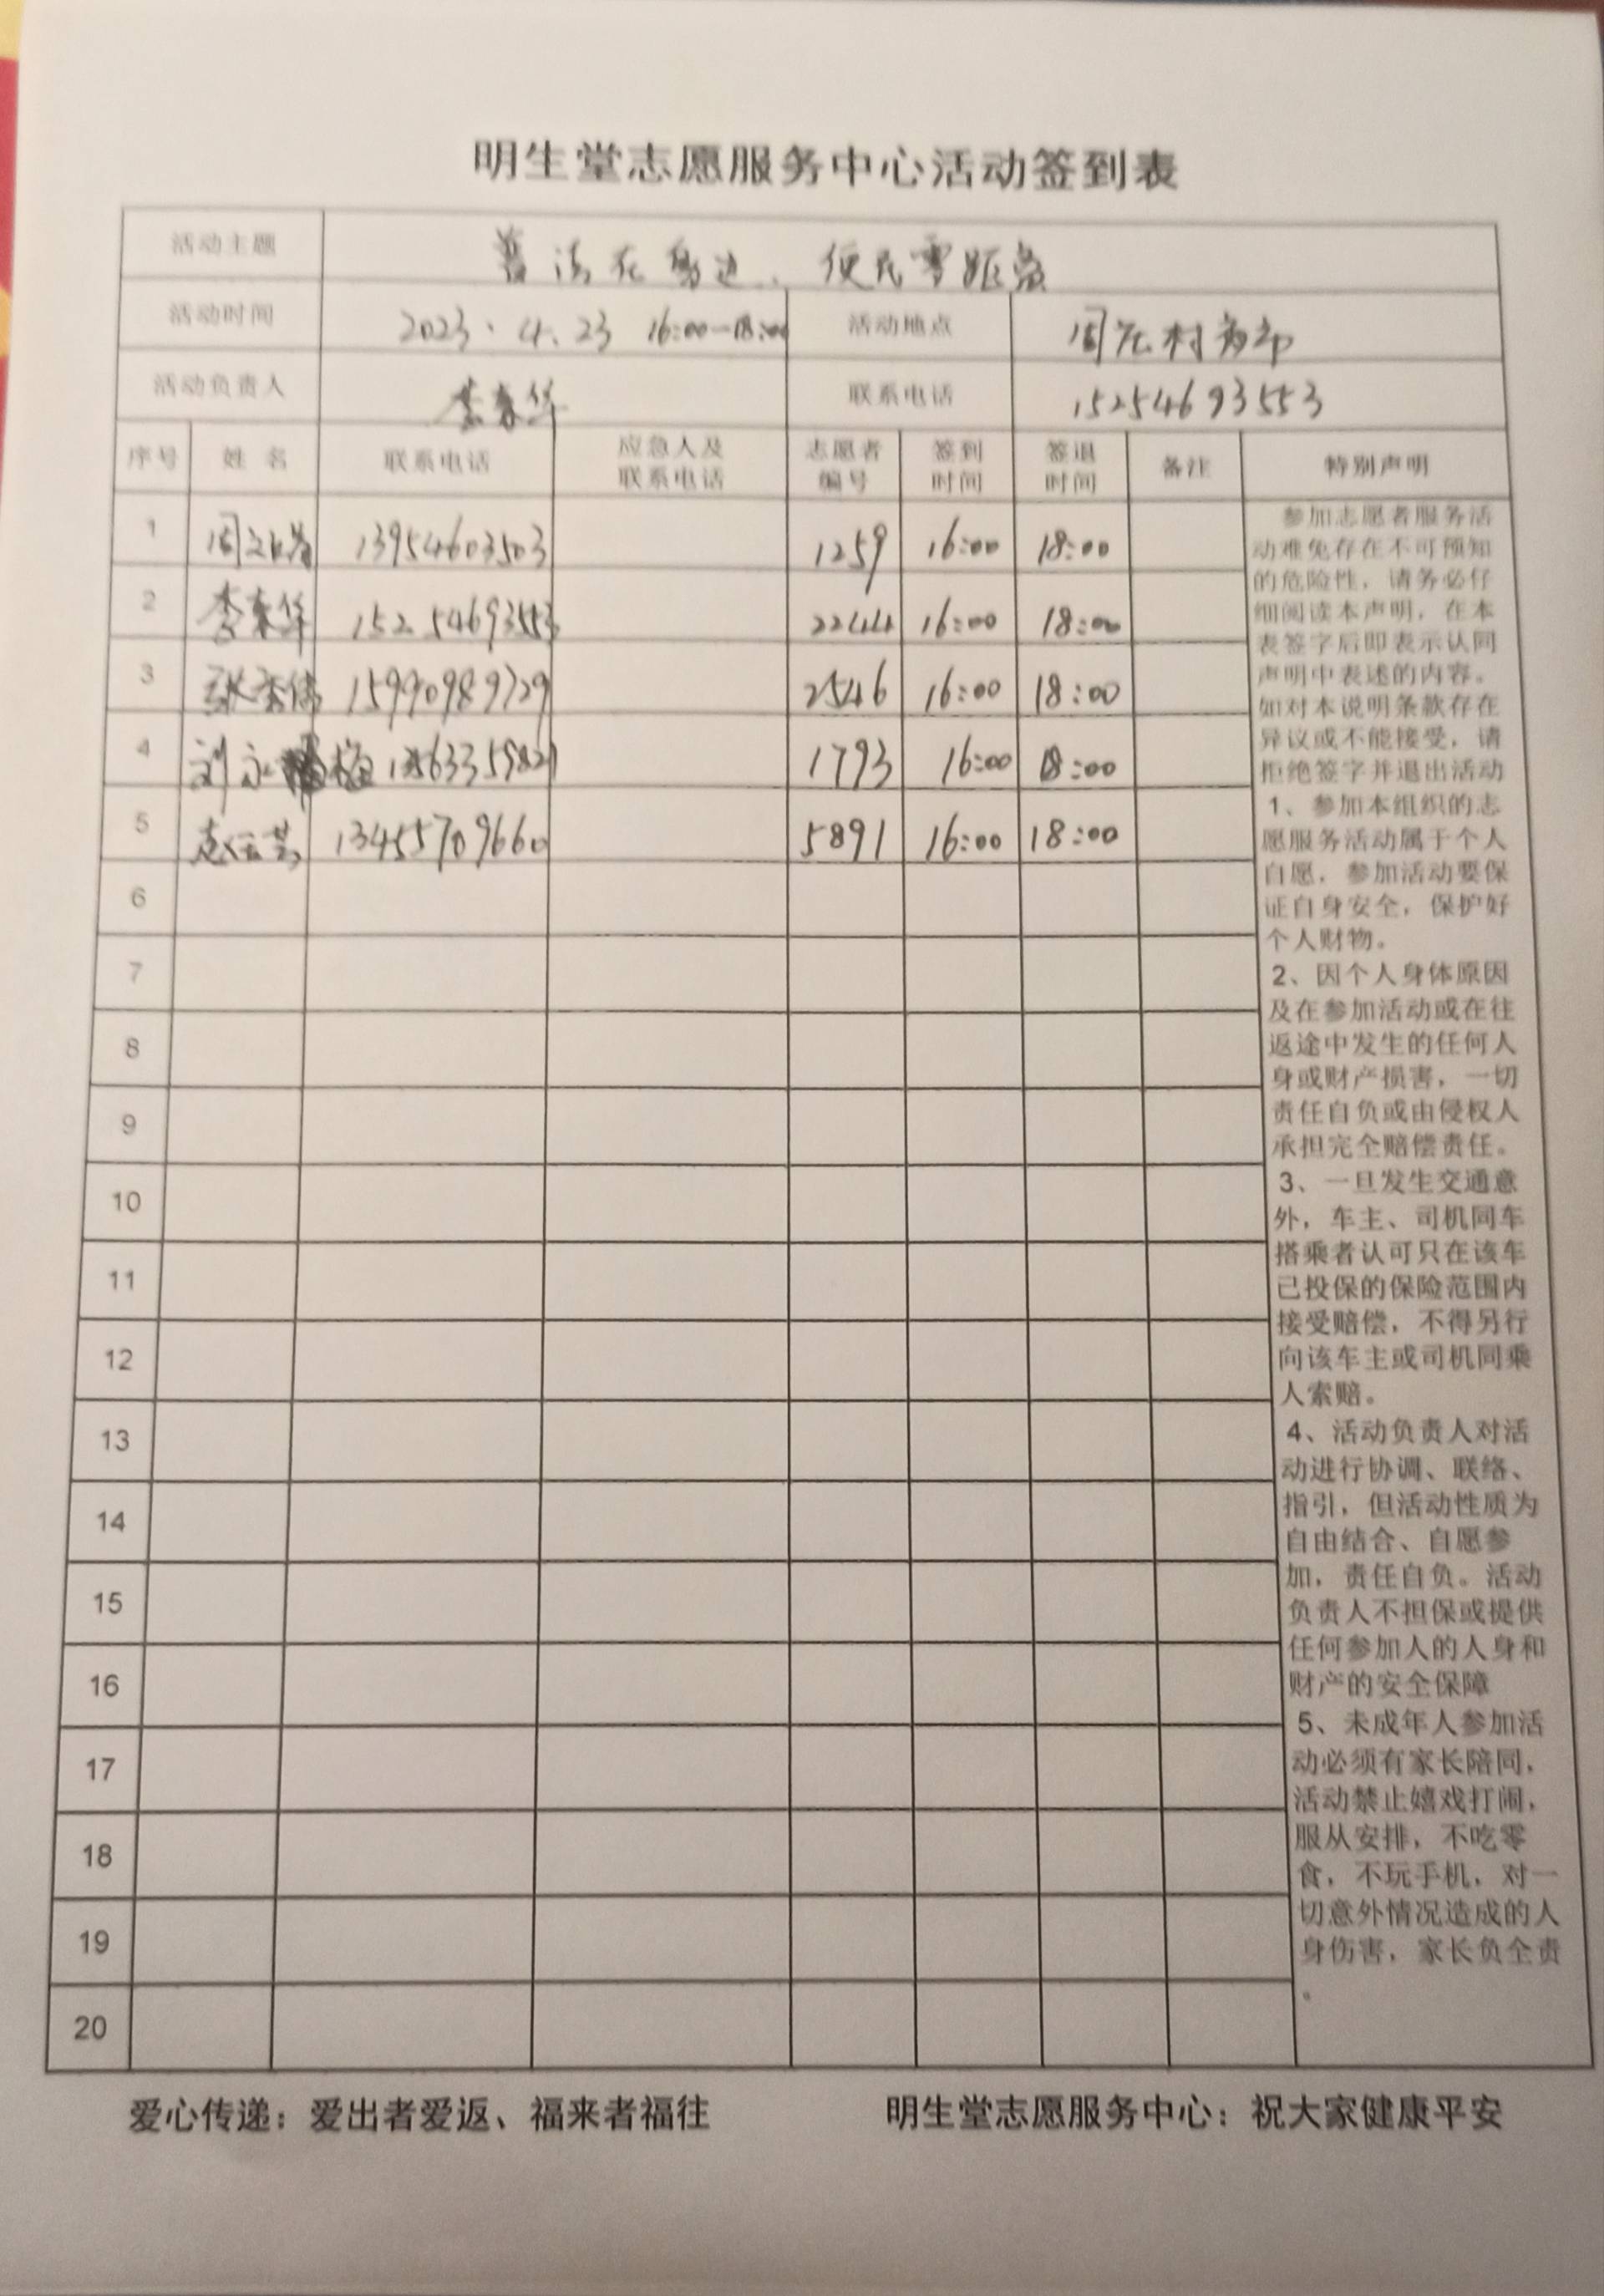 明生堂志愿服务中心活动签到表
活动主题 普法在身边、便民零距离
活动时间 2023.4.23 16:00-18:00 活动地点 周庄村
活动负责人 李春华 联系电话 15254693553
序号 姓名 联系电话 应急人及联系电话 志愿者编号 签到时间 签退时间 备注 特别声明
1 周 13954603503 1259 16:00 18:00
2 李春华 15254693553 2244 16:00 18:00
3 张秀伟 15990989729 2546 16:00 18:00
4 刘永梅 1793 16:00 18:00
5 赵云芸 13455709660 5891 16:00 18:00
6
7
8
9
10
11
12
13
14
15
16
17
18
19
20
参加志愿者服务活
动难免存在不可预知
的危险性，请务必仔
细阅读本声明，在本
表签字后即表示认同
声明中表述的内容。
如对本说明条款存在
异议或不能接受，请
拒绝签字并退出活动
1、参加本组织的志
愿服务活动属于个人
自愿，参加活动要保
证自身安全，保护好
个人财物。
2、因个人身体原因
及在参加活动或在往
返途中发生的任何人
身或财产损害，一切
责任自负或由侵权人
承担完全赔偿责任。
3、一旦发生交通意
外，车主、司机同车
搭乘者认可只在该车
已投保的保险范围内
接受赔偿，不得另行
向该车主或司机同乘
人索赔。
4、活动负责人对活
动进行协调、联络、
指引，但活动性质为
自由结合、自愿参
加，责任自负。活动
负责人不担保或提供
任何参加人的人身和
财产的安全保障
5、未成年人参加活
动必须有家长陪同，
活动禁止嬉戏打闹，
服从安排，不吃零
食，不玩手机，对一
切意外情况造成的人
身伤害，家长负全责
。
爱心传递：爱出者爱返、福来者福往 明生堂志愿服务中心：祝大家健康平安